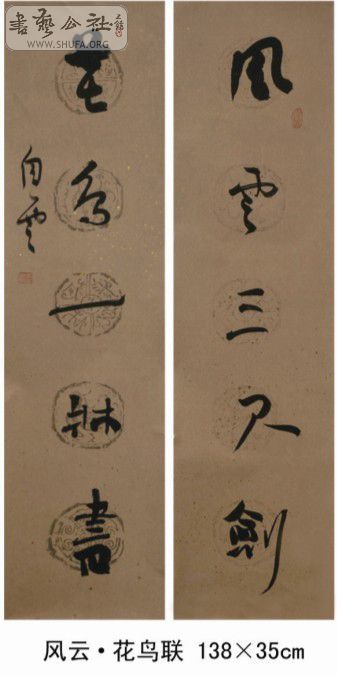 書藝公社
WWW.SHUFA.ORG
風雲三尺劍
花鳥一牀書
白雲
风云·花鸟联 138×35cm